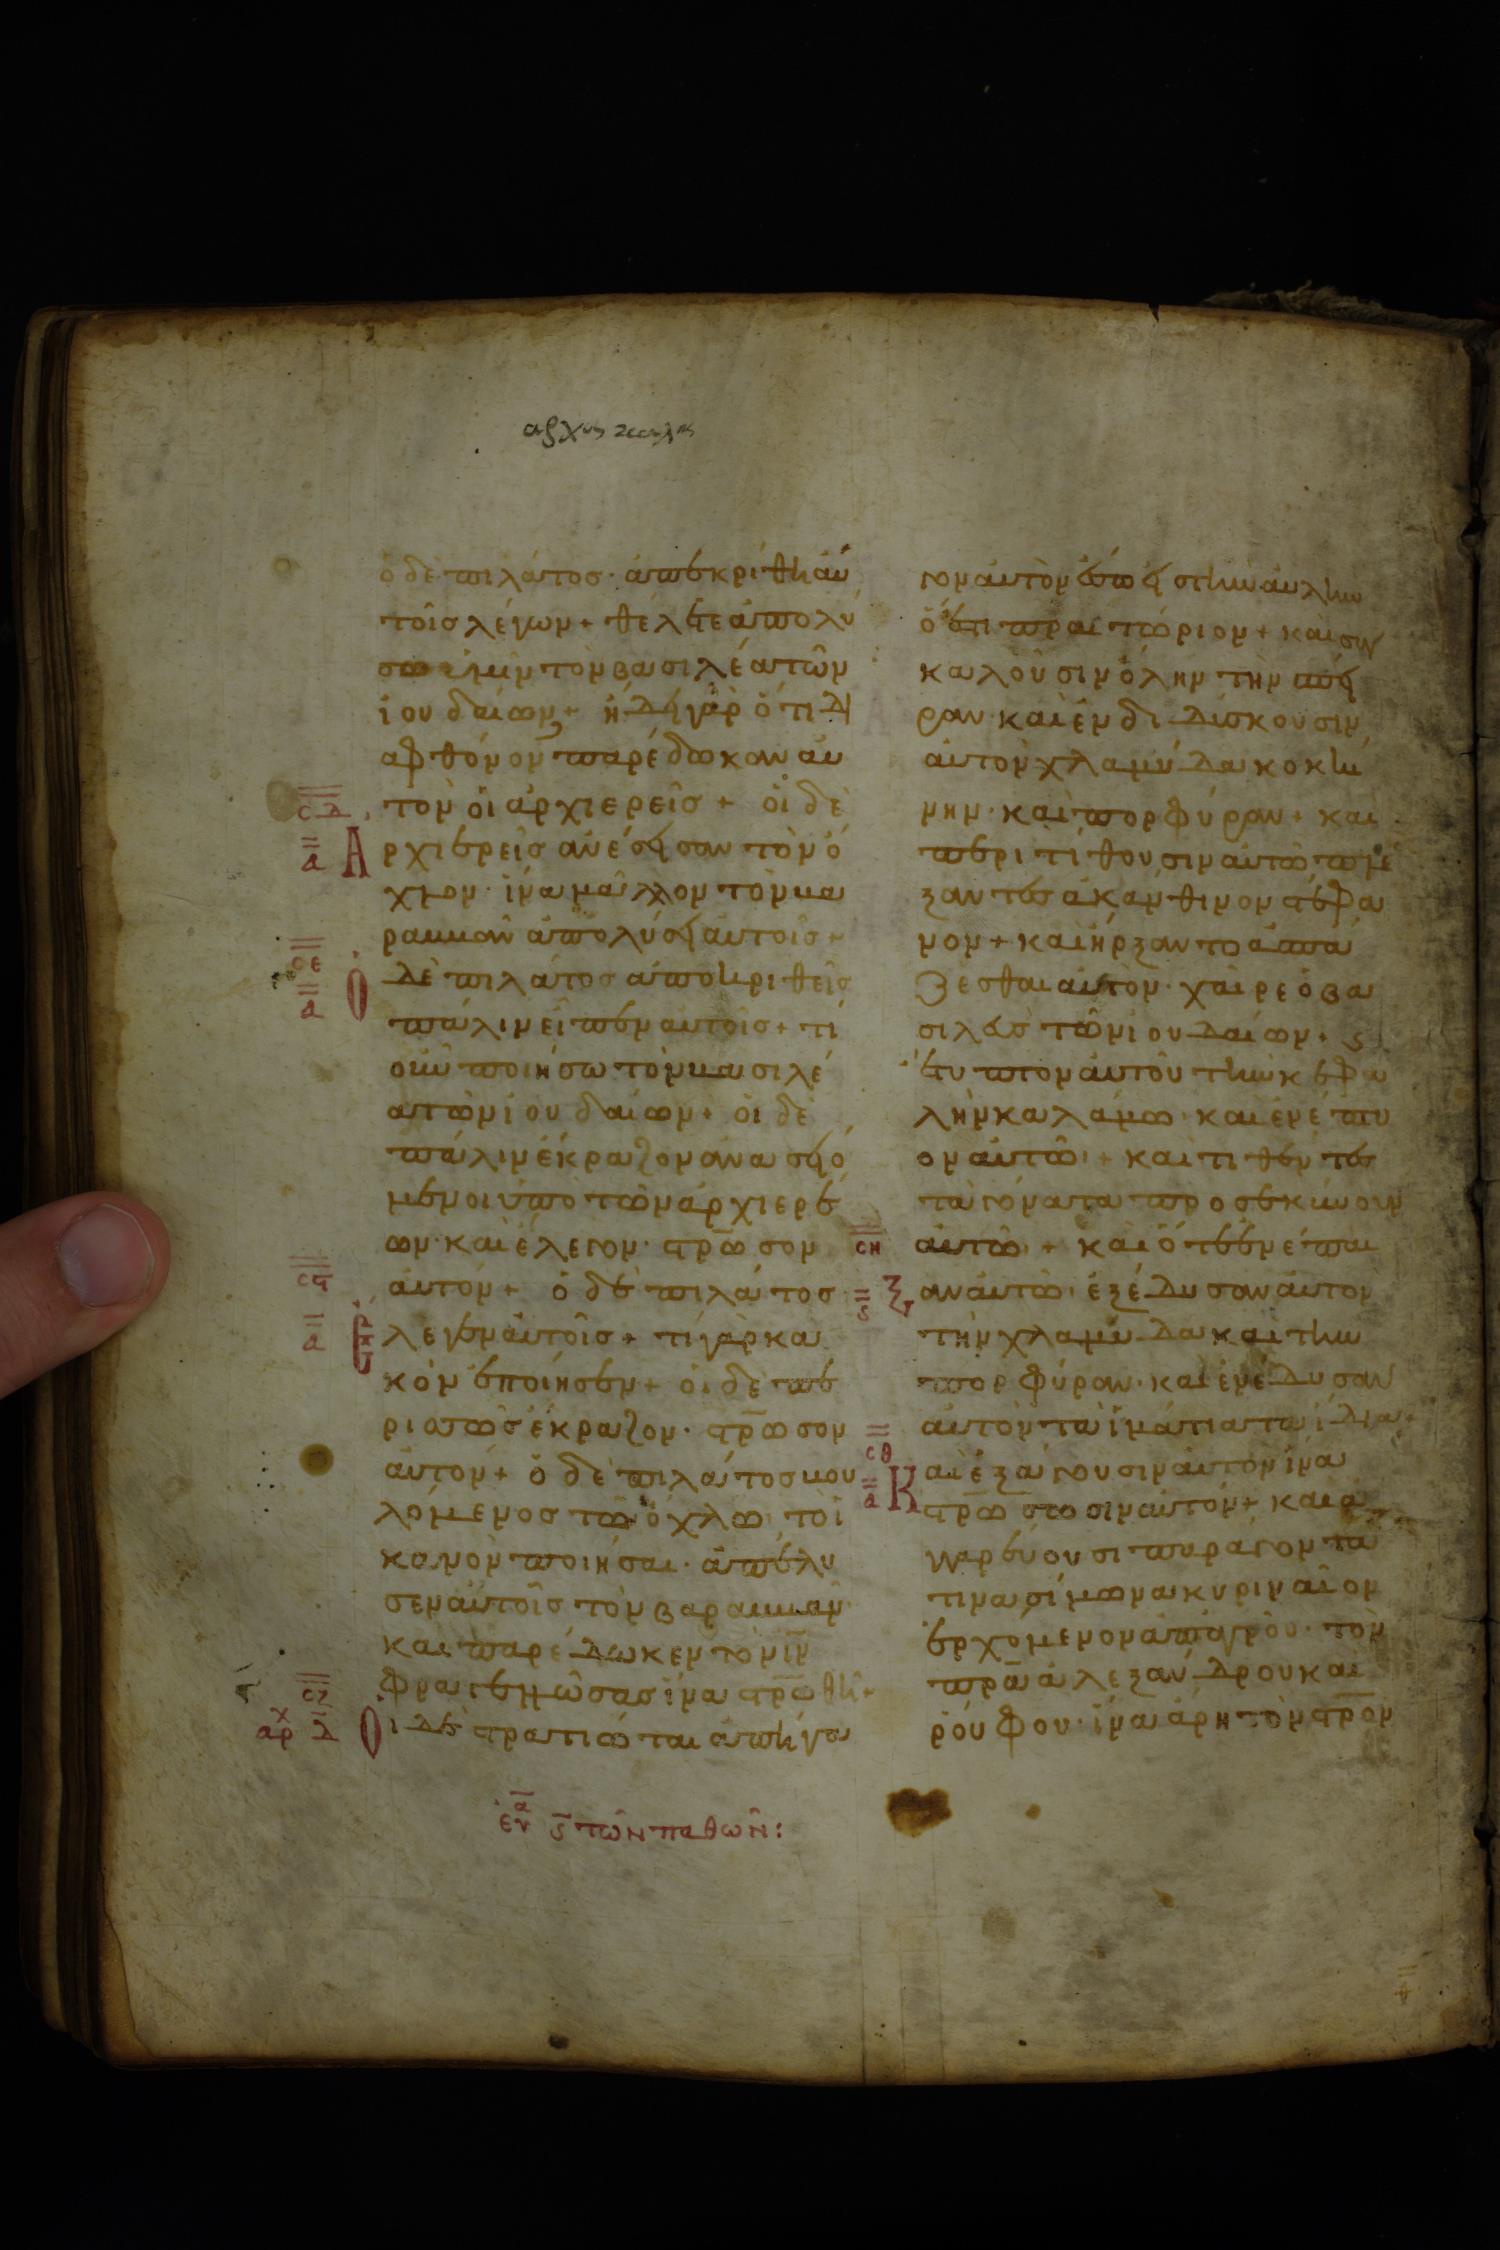 ὁ δὲ πιλάτος· ἀπεκρίθη αὐ
τοῖς λέγων + θέλετε ἀπολύ
σω ὑμῖν τὸν βασιλέα τῶν
ἰουδαίων + ἤδει γὰρ ὅτι δι
α φθόνον παρέδωκαν αὐ
τὸν οἱ ἀρχιερεῖς + οἱ δὲ
Αρχιερεῖς ἀνέσεισαν τὸν ὄ
χλον· ἵνα μᾶλλον τὸν βα
ραββᾶν ἀπολύσει αὐτοῖς +
Ο δὲ πιλάτος ἀποκριθεὶς
πάλιν εἶπεν αὐτοῖς + τί
οὖν ποιήσω τὸν βασιλέ
α τῶν ἰουδαίων + οἱ δὲ
πάλιν ἔκραζον ἀνασειό
μενοι ὑπὸ τῶν ἀρχιερέ
ων· καὶ ἔλεγον· στρω̅σον
αὐτόν + ὁ δὲ πιλάτος
Ελεγεν αὐτοῖς + τί γὰρ κα
κὸν ἐποίησεν + οἱ δὲ πε
ρισσῶς ἔκραζον· στρω̅σον
αὐτόν + ὁ δὲ πιλάτος βου
λόμενος τῷ ὄχλῳ τὸ ἱ
κανὸν ποιῆσαι· ἀπέλυ
σεν αὐτοῖς τὸν βαραββᾶν
καὶ παρέδωκεν τὸν ι̅ν̅
φραγελλώσας ἵνα στρω̅θῆ +
Οἱ δὲ στρατιῶται ἀπήγα
ἐν α̅ ϛ̅ τῶν παθῶν:
γον αὐτὸν ἔσω εἰς τὴν αὐλὴν
ὅ ἐστι πραιτώριον + καὶ συγ
καλοῦσιν ὅλην τὴν σπεῖ
ραν· καὶ ἐνδιδύσκουσιν
αὐτὸν χλαμύδα κοκκί
νην· καὶ πορφύραν + καὶ
περιτιθουσιν αὐτῷ πλέ
ξαντες ἀκάνθινον στέφα
νον + καὶ ἤρξαντο ἀσπά
ζεσθαι αὐτόν· χαῖρε ὁ βα
σιλεὺς τῶν ἰουδαίων + ϛ
ἔτυπτον αὐτοῦ τὴν κεφα
λὴν καλάμῳ· καὶ ἐνέπτυ
ον αὐτῷ + καὶ τιθέντες
τὰ γόνατα προσεκύνουν
αὐτῷ + καὶ ὅτε ἐνέπαι
ξαν αὐτῷ· ἐξέδυσαν αὐτὸν
τὴν χλαμύδα καὶ τὴν
πορφύραν· καὶ ἐνέδυσαν
αὐτὸν τὰ ἱμάτια τὰ ἴδια +
Καὶ ἐξάγουσιν αὐτὸν ἵνα
στρω̅σωσιν αὐτόν + καὶ ἀ
γγαρεύουσι παράγοντα
τινα σίμωνα κυριναῖον
ἐρχόμενον ἀπ' ἀγροῦ· τὸν
π̅ρ̅α̅ ἀλεξάνδρου καὶ
ῥούφου· ἵνα ἄρη τὸν στρο̅ν